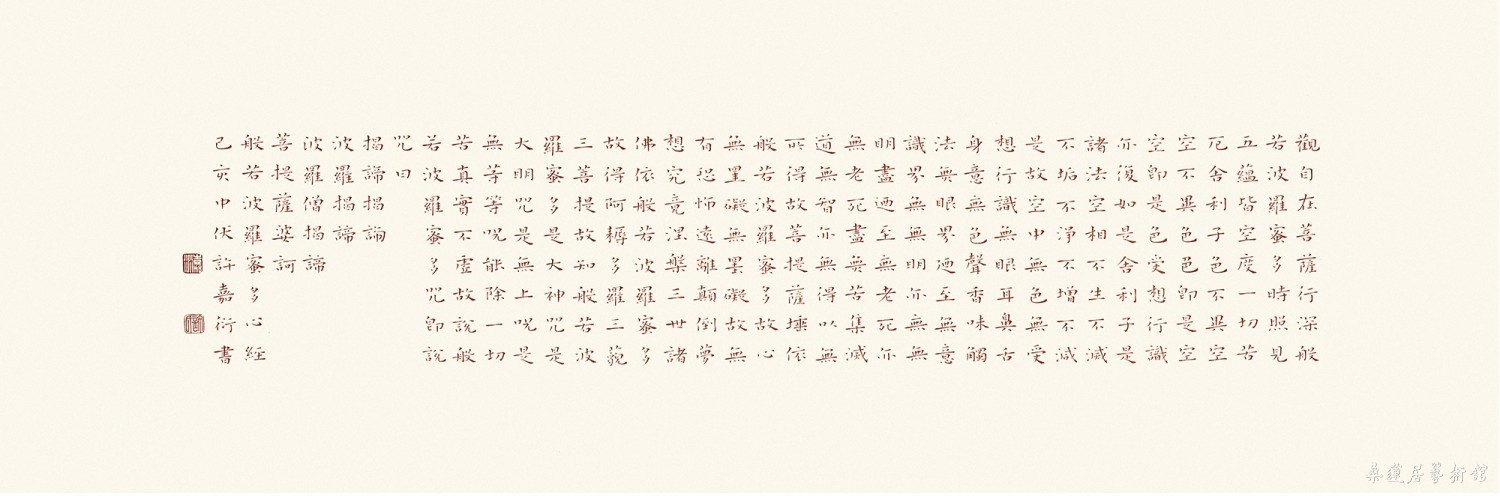 觀自在菩薩行深般
若波羅蜜多時照見
五蘊皆空度一切苦
厄舍利子色不異空
空不異色色即是空
空即是色受想行識
亦復如是舍利子是
諸法空相不生不滅
不垢不淨不增不減
是故空中無色無受
想行識無眼耳鼻舌
身意無色聲香味觸
法無眼界迺至無意
識界無無明亦無無
明盡迺至無老死亦
無老死盡無苦集滅
道無智亦無得以無
所得故菩提薩埵依
般若波羅蜜多故心
無罣礙無罣礙故無
有恐怖遠離顛倒夢
想究竟涅槃三世諸
佛依般若波羅蜜多
故得阿耨多羅三藐
三菩提故知般若波
羅蜜多是大神咒是
大明咒是無上呪是
無等等呪能除一切
苦真實不虛故說般
若波羅蜜多咒即說
咒曰
揭諦揭諦
波羅揭諦
波羅僧揭諦
菩提薩婆訶
般若波羅蜜多心經
己亥中伏許嘉衍書
桑蓮居藝術館